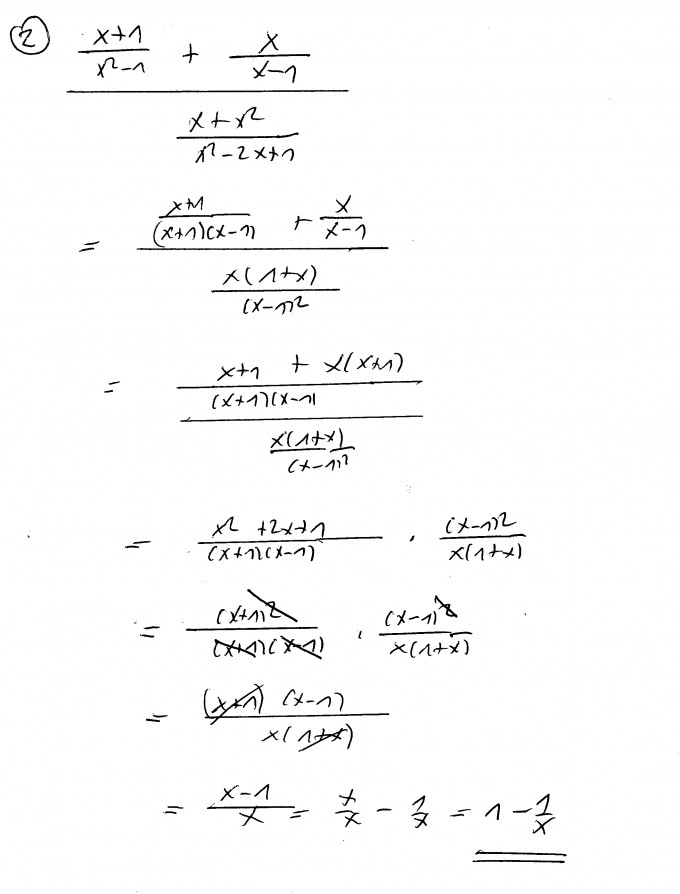 ② (x+1)/(x²-1) + x/(x-1)
(x+x²)/(x²-2x+1)
= (x+1)/((x+1)(x-1)) + x/(x-1)
x(1+x)/(x-1)²
= (x+1 + x(x+1))/((x+1)(x-1))
x(1+x)/(x-1)²
= (x²+2x+1)/((x+1)(x-1)) · (x-1)²/(x(1+x))
= (x+1)²/((x+1)(x-1)) · (x-1)²/(x(1+x))
= (x+1)(x-1)/(x(1+x))
= (x-1)/x = x/x - 1/x = 1 - 1/x